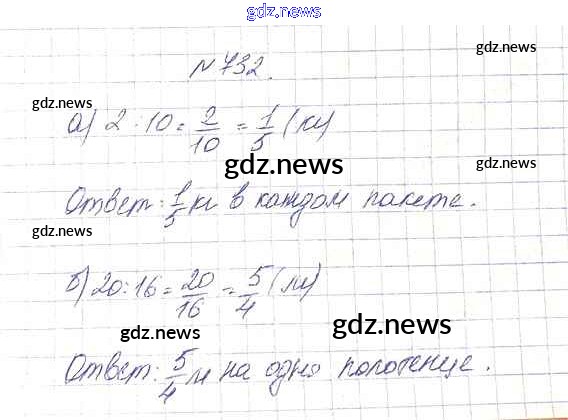 gdz.news
№ 732.
gdz.news
gdz.news
а) 2 : 10 = 2/10 = 1/5 (кг)
gdz.news
gdz.news
Ответ: 1/5 кг в каждом пакете.
gdz.news
gdz.news
б) 20 : 16 = 20/16 = 5/4 (м)
gdz.news
gdz.news
Ответ: 5/4 м на одно полотенце.
gdz.news